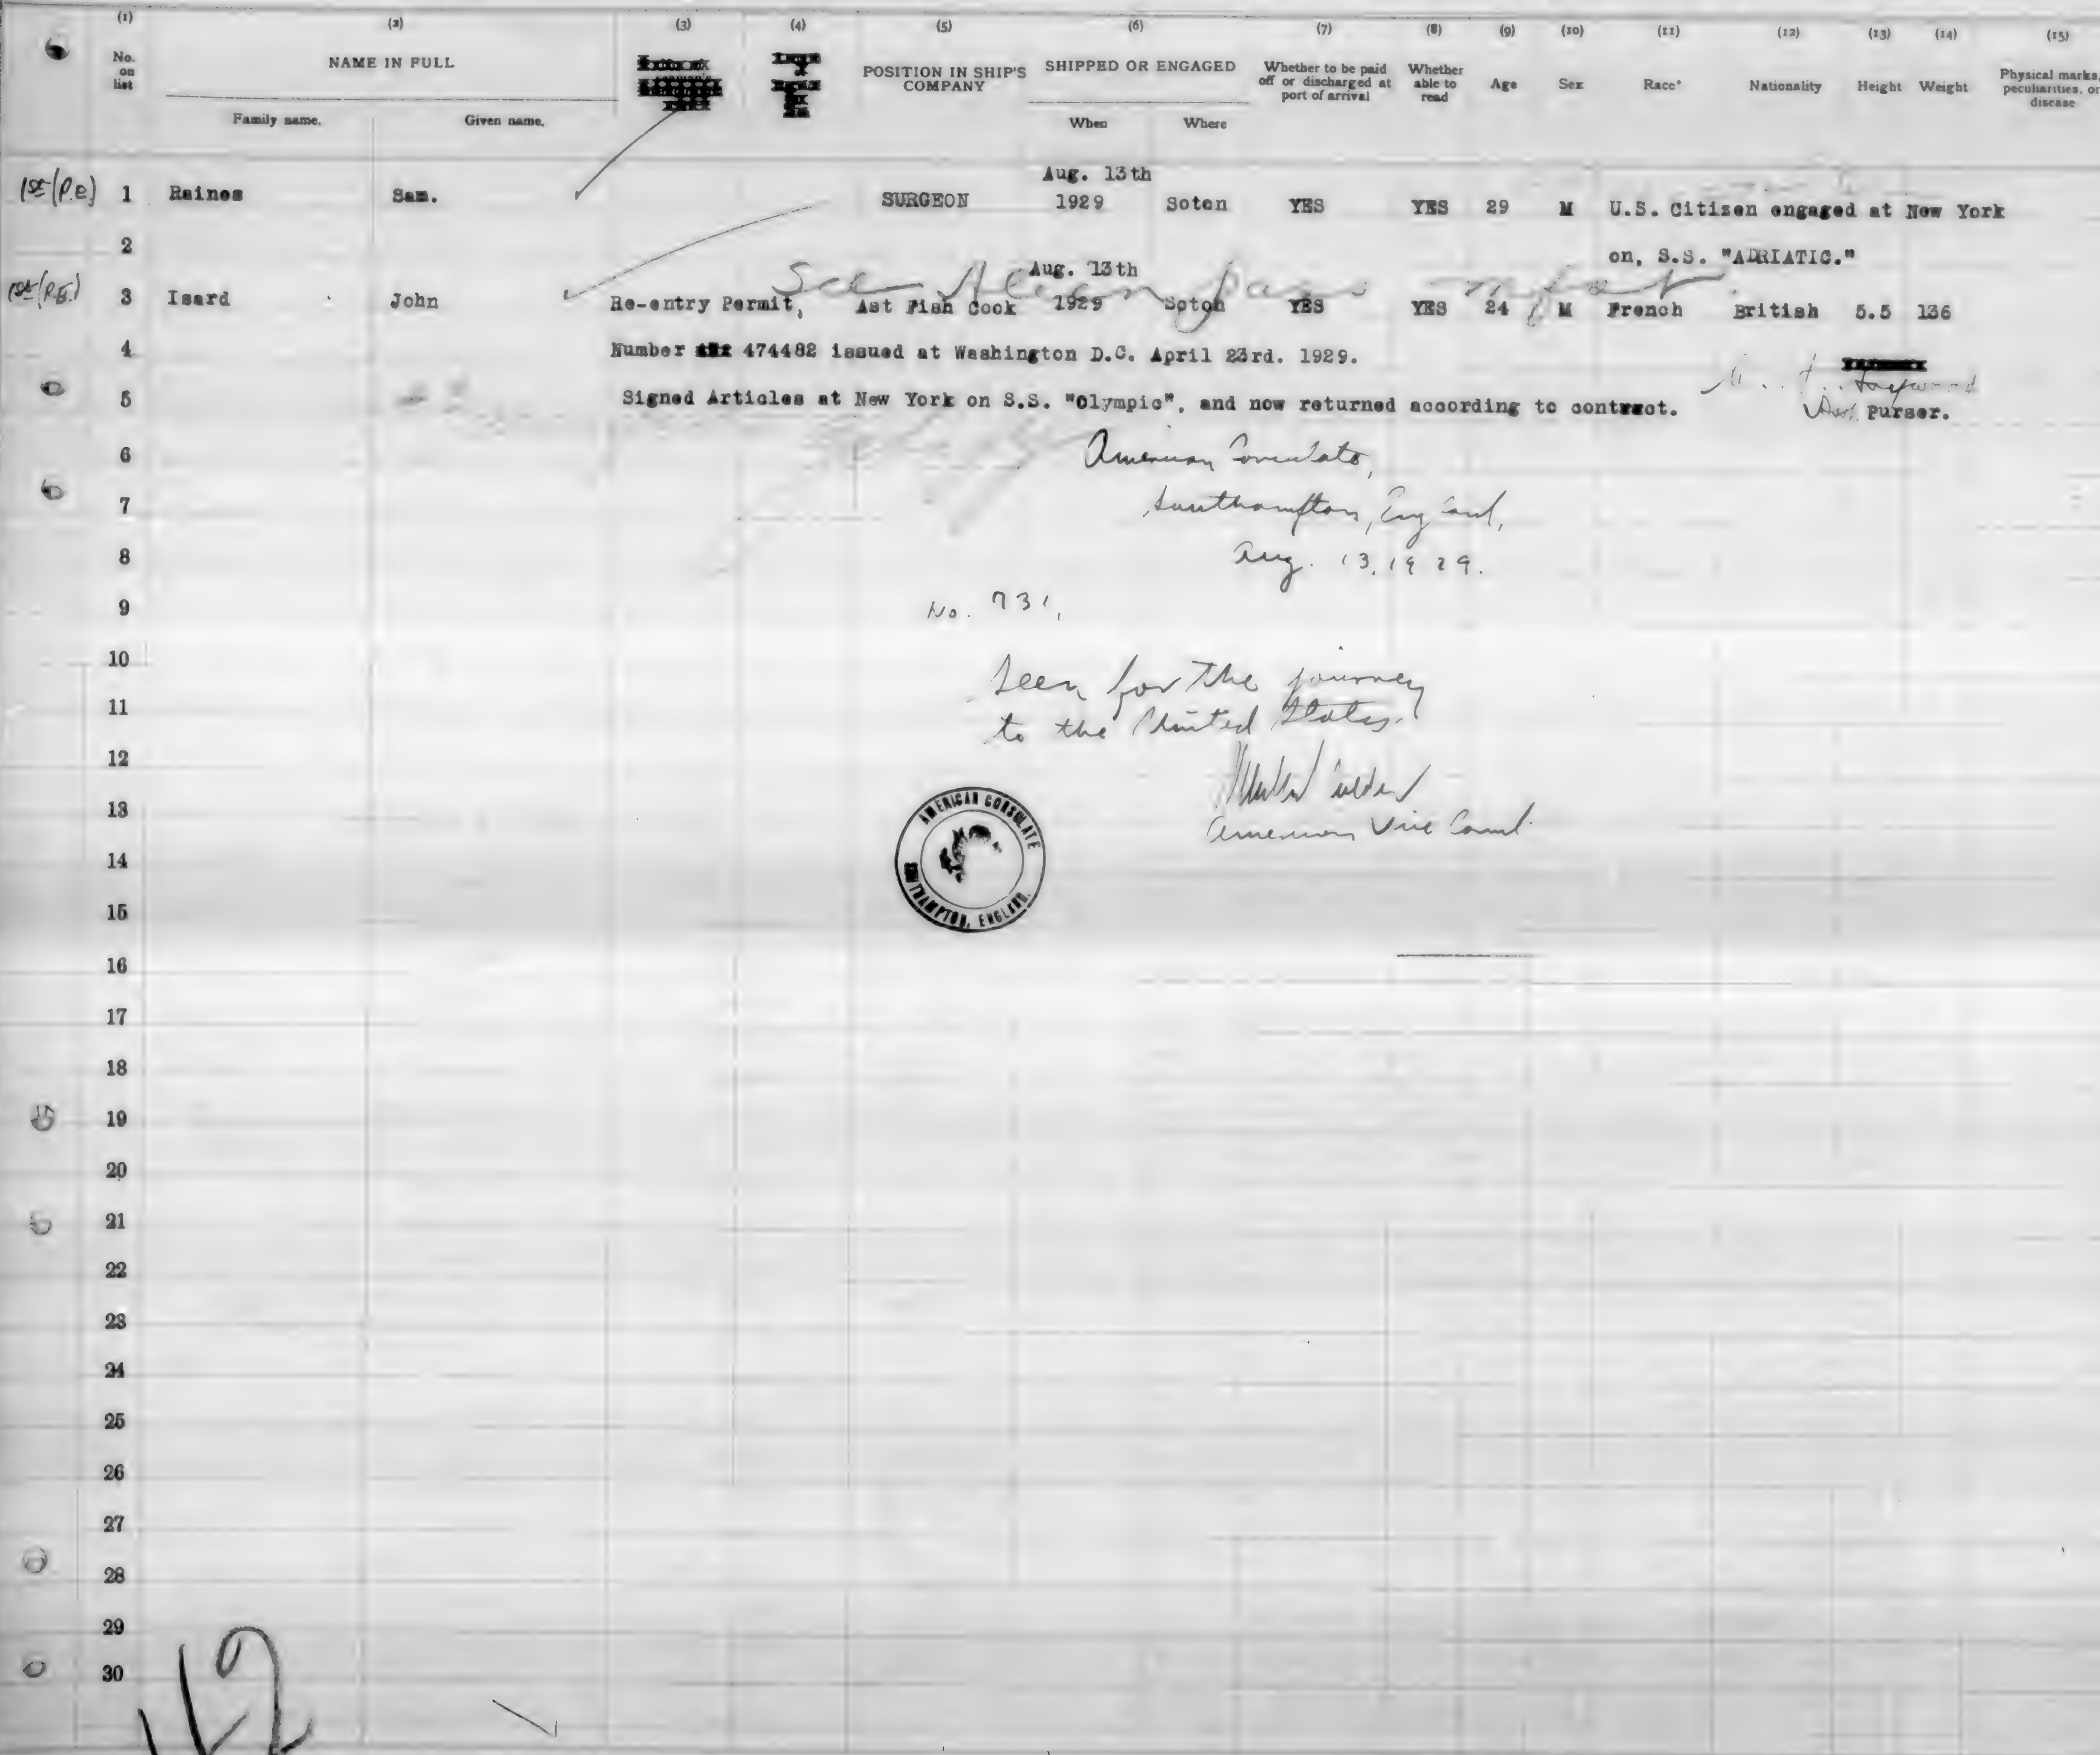 (1) (2) (3) (4) (5) (6) (7) (8) (9) (10) (11) (12) (13) (14) (15)
No. on list NAME IN FULL POSITION IN SHIP'S COMPANY SHIPPED OR ENGAGED Whether to be paid off or discharged at port of arrival Whether able to read Age Sex Race* Nationality Height Weight Physical marks, peculiarities, or disease
Family name. Given name. When Where
Aug. 13th
1st (P.E) 1 Raines Sam. SURGEON 1929 Soton YES YES 29 M U.S. Citizen engaged at New York
2 on, S.S. "ADRIATIC."
See Alien
Aug. 13th
1st (P.E.) 3 Isard John Re-entry Permit, Ast Fish Cook 1929 Soton YES YES 24 M French British 5.5 136
4 Number 474482 issued at Washington D.C. April 23rd. 1929.
5 Signed Articles at New York on S.S. "Olympic", and now returned according to contract. Asst. Purser.
6 American Consulate,
7 Southampton, England,
8 Aug. 13, 1929.
9 No. 731,
10 Seen for the journey
11 to the United States.
12
13 American Vice Consul
AMERICAN CONSULATE
SOUTHAMPTON, ENGLAND.
14
15
16
17
18
19
20
21
22
23
24
25
26
27
28
29
30